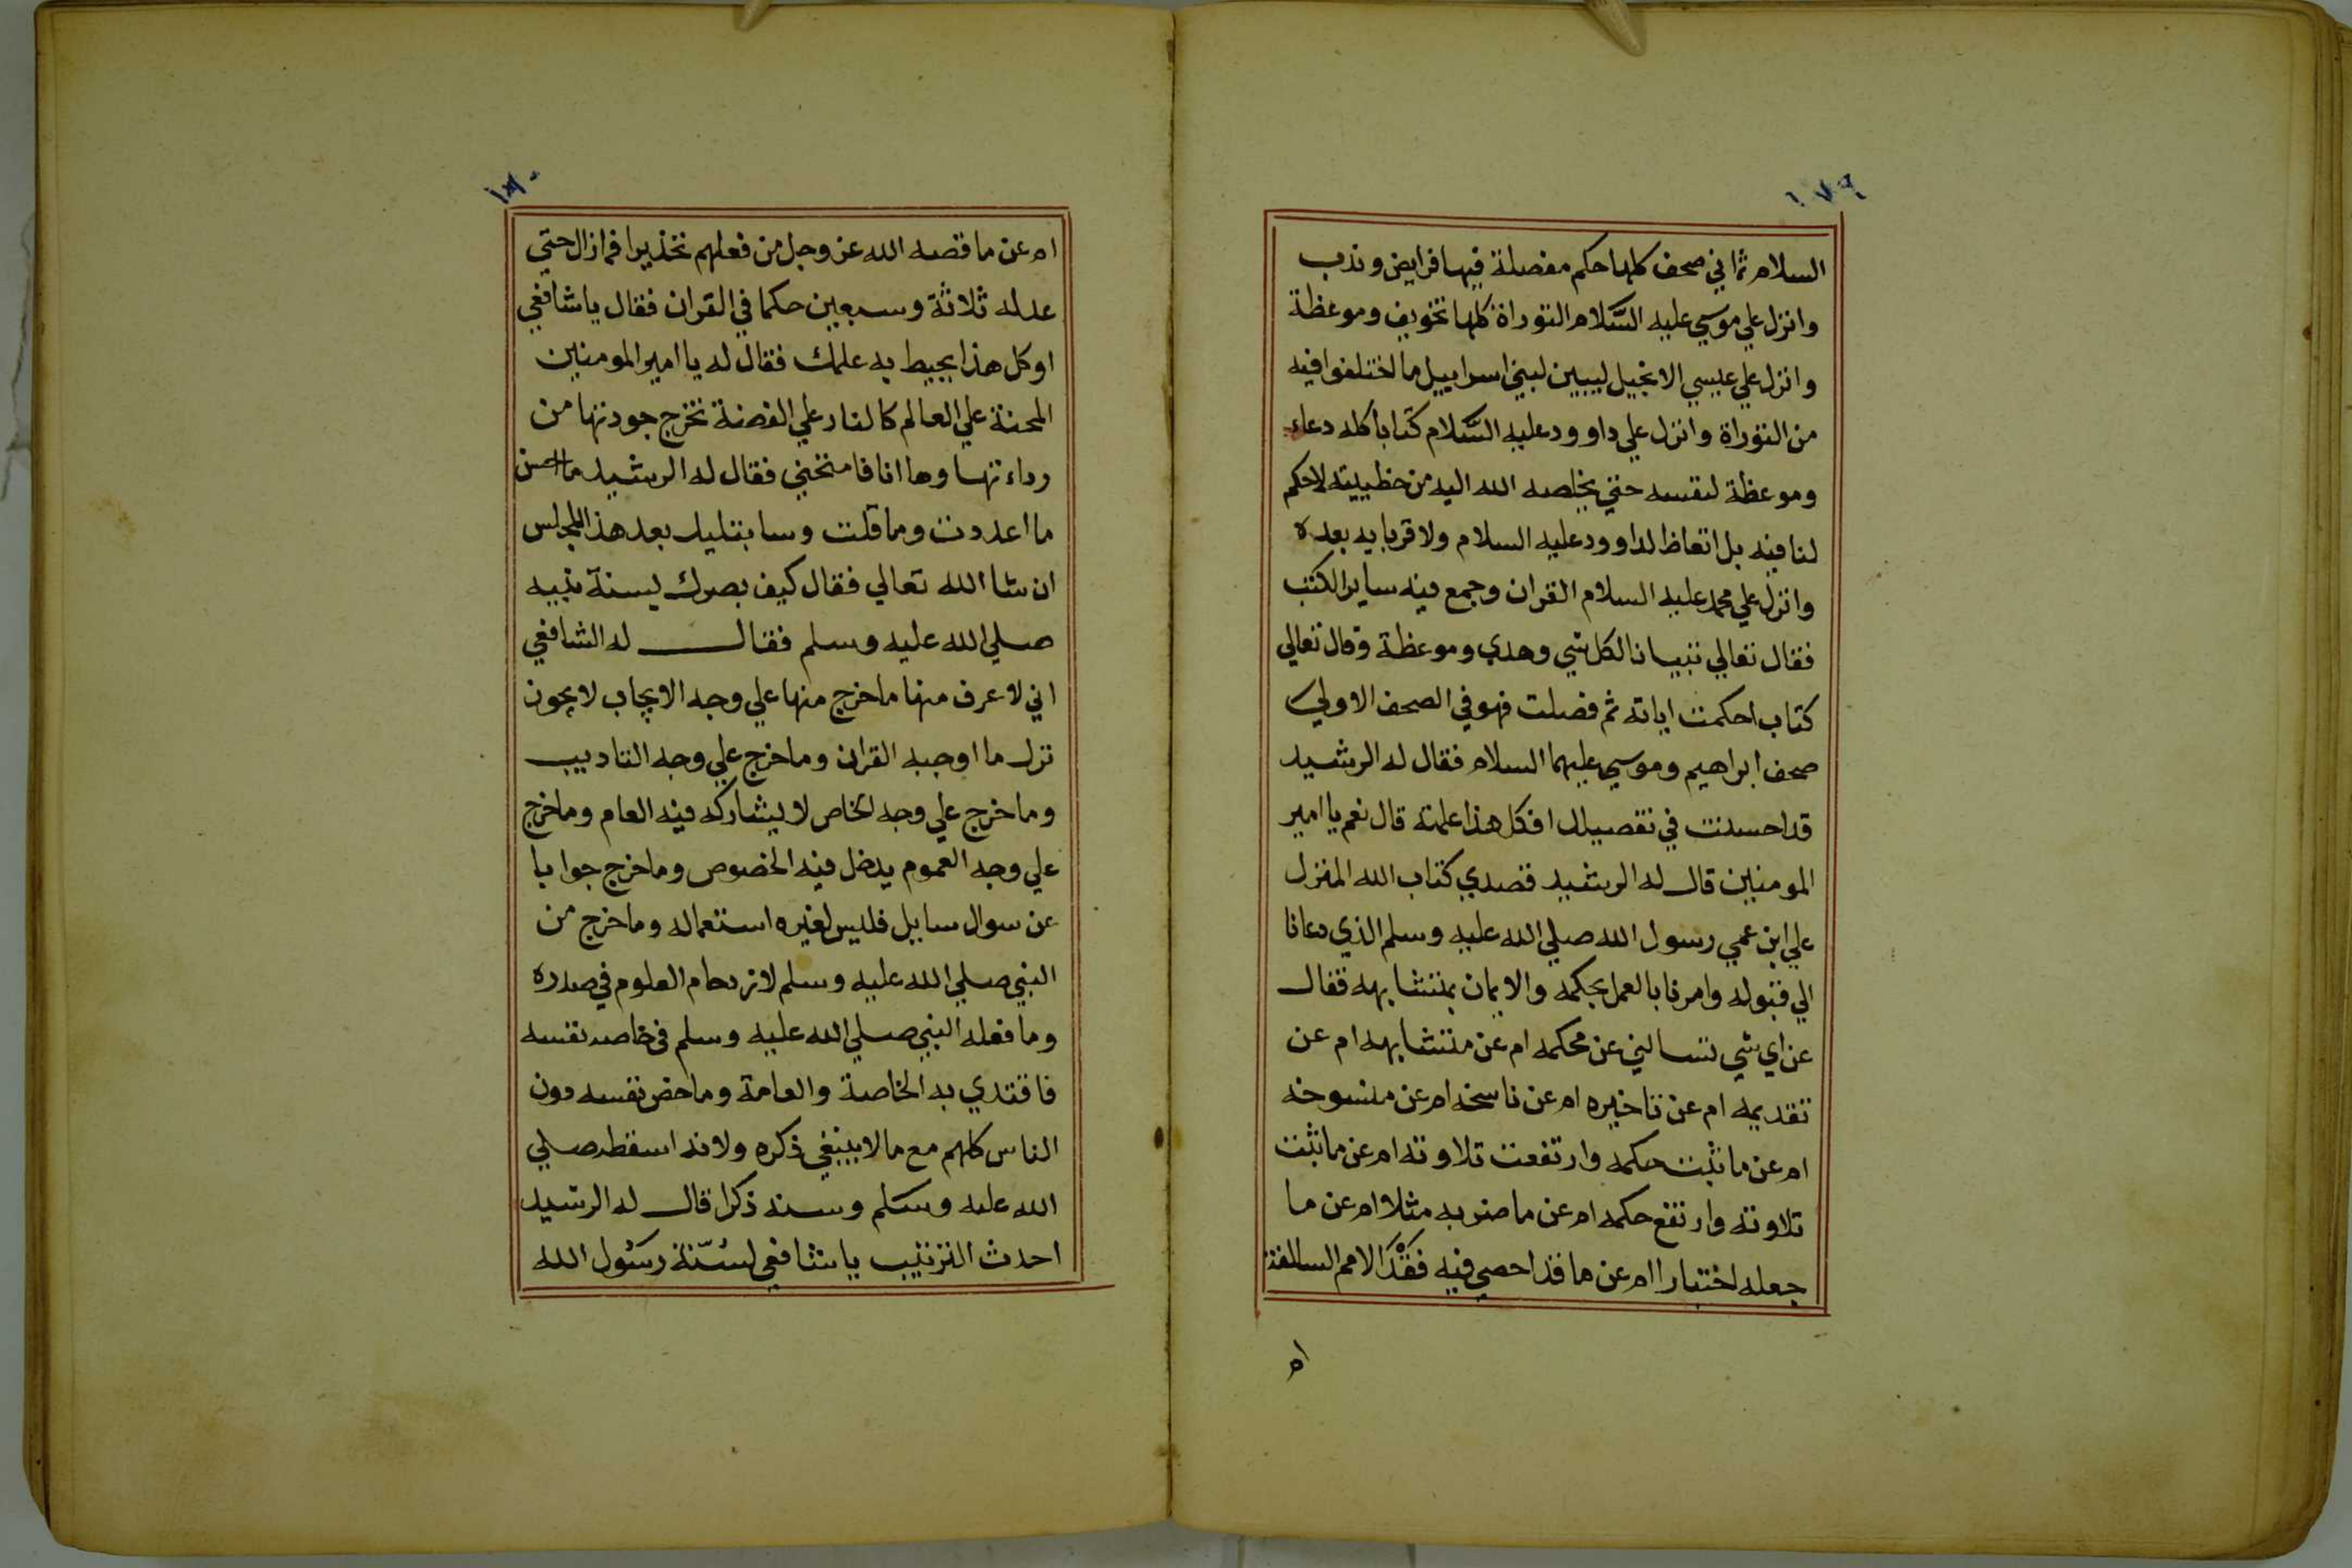 ١٧٩
السلام ثماني صحف كلها حكم مفصلة فيها فرايض ونذب
وانزل علي موسي عليه السَّلام التوراة كلها تخويف وموعظة
وانزل علي عيسي الانجيل ليبين لبني اسراييل ما اختلفوا فيه
من التوراة وانزل علي داوود عليه السَّلام كتابا كله دعاء
وموعظة لنفسه حتي يخلصه الله اليه من خطييته لاحكم
لنا فيه بل اتعاظ الداوود عليه السلام ولا قربايه بعده
وانزل علي محمد عليه السلام القران وجمع فيه ساير الكتب
فقال تعالي تبيانا لكل شي وهدي وموعظة وقال تعالي
كتاب احكمت اياته ثم فصلت فهو في الصحف الاولي
صحف ابراهيم وموسي عليهما السلام فقال له الرشيد
قد احسنت في تفصيلك افكل هذا علمته قال نعم يا امير
المومنين قال له الرشيد قصدي كتاب الله المنزل
علي ابن عمي رسول الله صلي الله عليه وسلم الذي دعانا
الي قبوله وامرنا بالعمل بحكمه والايمان بمتشابهه فقال
عن اي شي تسالني عن محكمه ام عن متشابهه ام عن
تقديمه ام عن تاخيره ام عن ناسخه ام عن منسوخه
ام عن ما ثبت حكمه وارتفعت تلاوته ام عن ما ثبت
تلاوته وارتفع حكمه ام عن ما ضرب به مثلا ام عن ما
جعله اختبارا ام عن ما قد احصي فيه فَقْدَ الامم السالفة
ام
١٨٠
ام عن ما قصه الله عز وجل من فعلهم تحذيرا فما زال حتي
عد له ثلاثة وسبعين حكما في القران فقال يا شافعي
او كل هذا يحيط به علمك فقال له يا امير المومنين
المحنة علي العالم كالنار علي الفضة تخرج جودتها من
رداءتها وها انا فامتحني فقال له الرشيد ما احسن
ما اعددت ومما قلت وسابتليك بعد هذا المجلس
ان شا الله تعالي فقال كيف بصرك بسنة نبيه
صلي الله عليه وسلم فقال له الشافعي
اني لاعرف منها ما خرج منها علي وجه الايجاب لا يجون
ترك ما اوجبه القران وما خرج علي وجه التاديب
وما خرج علي وجه الخاص لا يشاركه فيه العام وما خرج
علي وجه العموم يدخل فيه الخصوص وما خرج جوابا
عن سوال سايل فليس لغيره استعماله وما خرج من
النبي صلي الله عليه وسلم لازدحام العلوم في صدره
وما فعله النبي صلي الله عليه وسلم في خاصه نفسه
فاقتدي به الخاصة والعامة وما خص نفسه دون
الناس كلهم مع ما لا ينبغي ذكره ولانه اسقطه صلي
الله عليه وسَلم وسنه ذكرا قال له الرشيد
احدث الترتيب يا شافعي لسُنّة رسُول الله